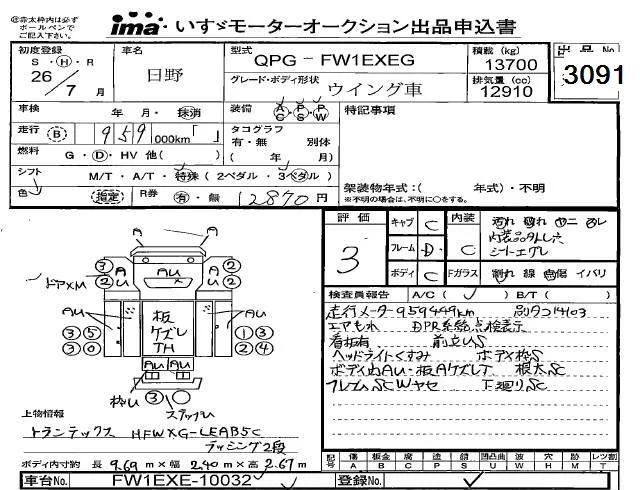 ◎赤太枠内は必ず
ボールペンで
ご記入下さい。
ima いすゞモーターオークション出品申込書
初度登録
S・H・R
26
7 月
車名
日野
型式
QPG-FW1EXEG
グレード・ボディ形状
ウイング車
積載 (kg)
13700
排気量 (cc)
12910
出品No
3091
車検 年 月・抹消
装備 AC・PS・PW
特記事項
走行 B 959 000km「 」
タコグラフ
有・無 別体
( 年 月)
燃料 G・D・HV 他( )
シフト M/T・A/T・特殊 (2ペダル・3ペダル)
架装物年式:( 年式)・不明
※不明の場合は、不明に○をする。
色 指定 R券 有・無 12870 円
評価
3
キャブ C
フレーム D
ボディ C
内装 C
汚れ 破れ ヤニ
内装品外し穴
シートエグレ
Fガラス 割れ 線 傷 イバリ
検査員報告 A/C( ✓ ) B/T( )
走行メータ959449km 別タコ1403
エアもれ DPR系統点検表示
看板有 前立US
ヘッドライトくすみ ボデ枠S
ボデ内AU・板AケズレT 根太SC
フレームSCWヤセ 下廻りSC
ドア×M
A A
3 A A 2
2 A AU A 2
AU AU
板
ケズレ
TH
3 5 1 3
3 0 2 4
AU AU
枠U 3 ステップU
上物情報
トランテックス HFWXG-LEAB5C
ラッシング2段
ボディ内寸約 長 9.69 m×幅 2.40 m×高 2.67 m
記号 傷 板金 腐 塗 錆 凹凸曲 W 穴 跡 レンズ割
A B C P S U W H M T
車台No. FW1EXE-10032
登録No.